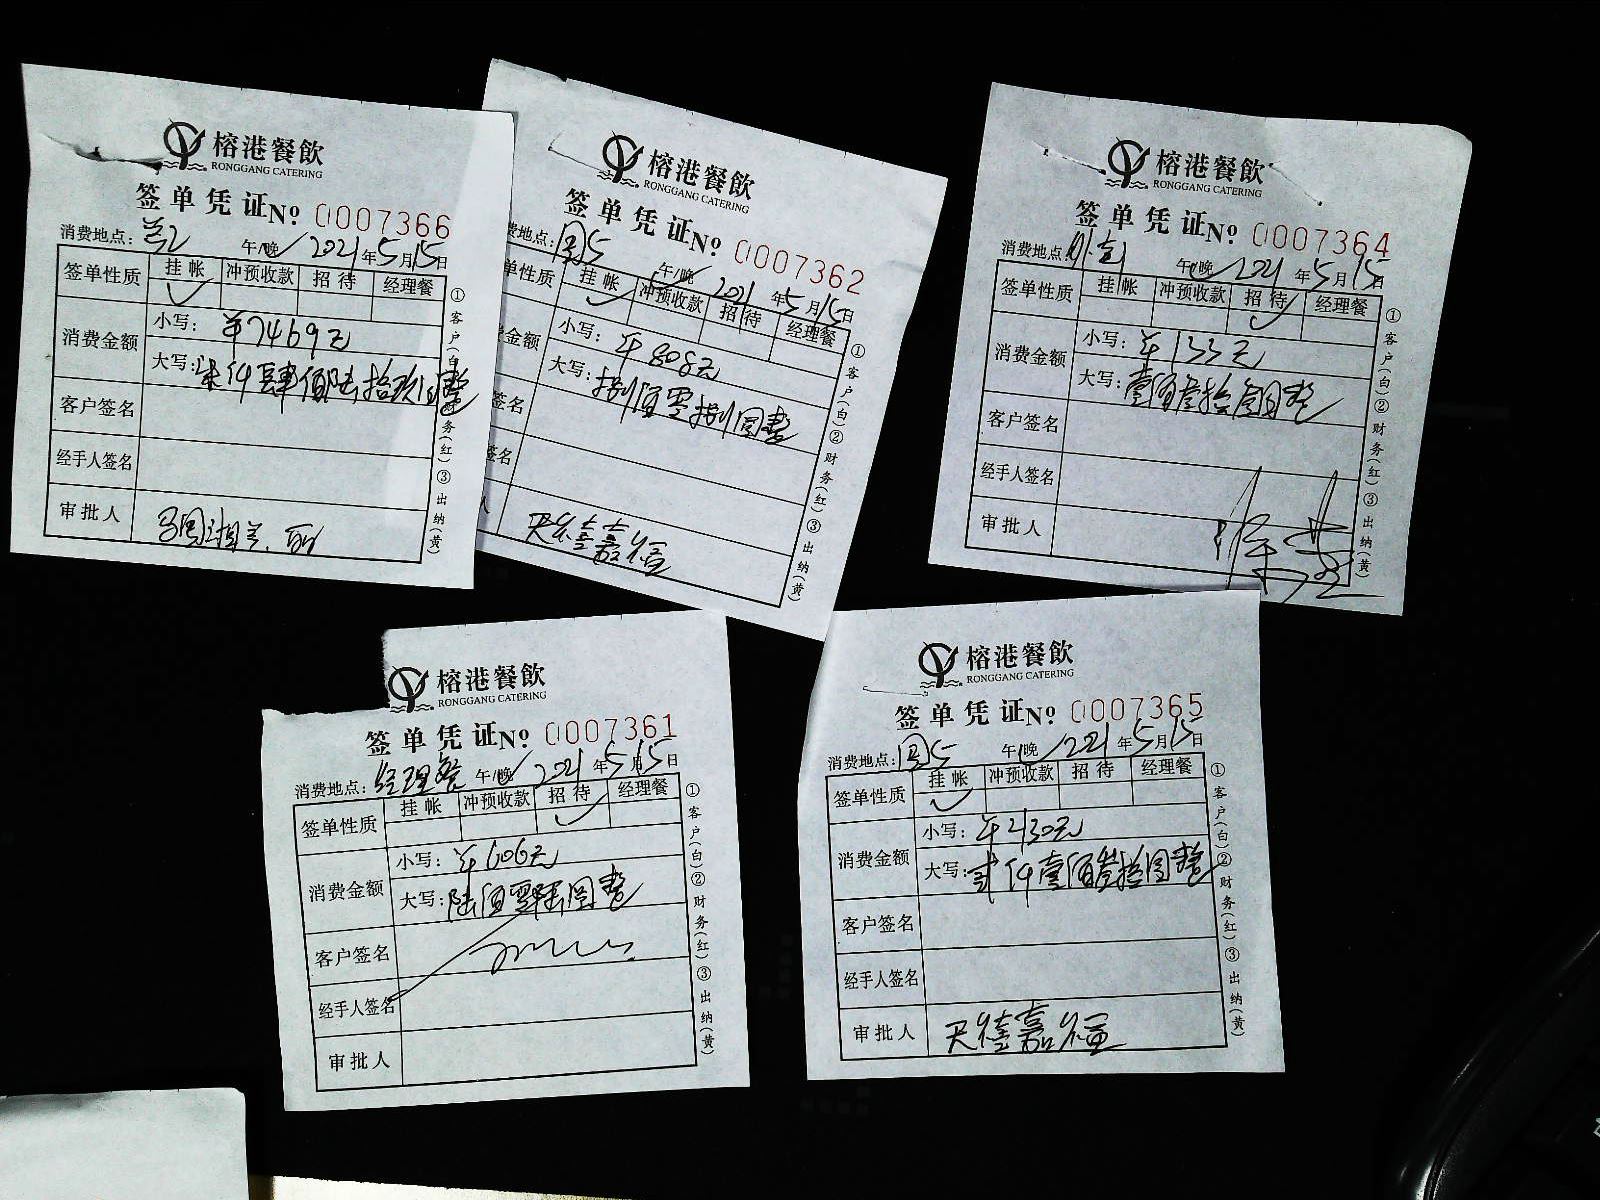 榕港餐飲
RONGGANG CATERING
签单凭证 No 0007366
消费地点: 午/晚 2021年5月15日
签单性质 挂帐 冲预收款 招待 经理餐
消费金额 小写: ¥7469元
大写: 柒仟肆佰陆拾玖圆整
客户签名
经手人签名
审批人
①客户(白)②财务(红)③出纳(黄)
榕港餐飲
RONGGANG CATERING
签单凭证 No 0007362
费地点: 园5 午/晚 2021年5月15日
单性质 挂帐 冲预收款 招待 经理餐
金额 小写: ¥808元
大写: 捌佰零捌圆整
签名
签名
人 天佳嘉恒
①客户(白)②财务(红)③出纳(黄)
榕港餐飲
RONGGANG CATERING
签单凭证 No 0007364
消费地点: 午/晚 2021年5月15日
签单性质 挂帐 冲预收款 招待 经理餐
消费金额 小写: ¥133元
大写: 壹佰叁拾叁圆整
客户签名
经手人签名
审批人
①客户(白)②财务(红)③出纳(黄)
榕港餐飲
RONGGANG CATERING
签单凭证 No 0007361
消费地点: 经理餐 午/晚 2021年5月15日
签单性质 挂帐 冲预收款 招待 经理餐
消费金额 小写: ¥606元
大写: 陆佰零陆圆整
客户签名
经手人签名
审批人
①客户(白)②财务(红)③出纳(黄)
榕港餐飲
RONGGANG CATERING
签单凭证 No 0007365
消费地点: 园5 午/晚 2021年5月15日
签单性质 挂帐 冲预收款 招待 经理餐
消费金额 小写: ¥2130元
大写: 贰仟壹佰叁拾圆整
客户签名
经手人签名
审批人 天佳嘉恒
①客户(白)②财务(红)③出纳(黄)